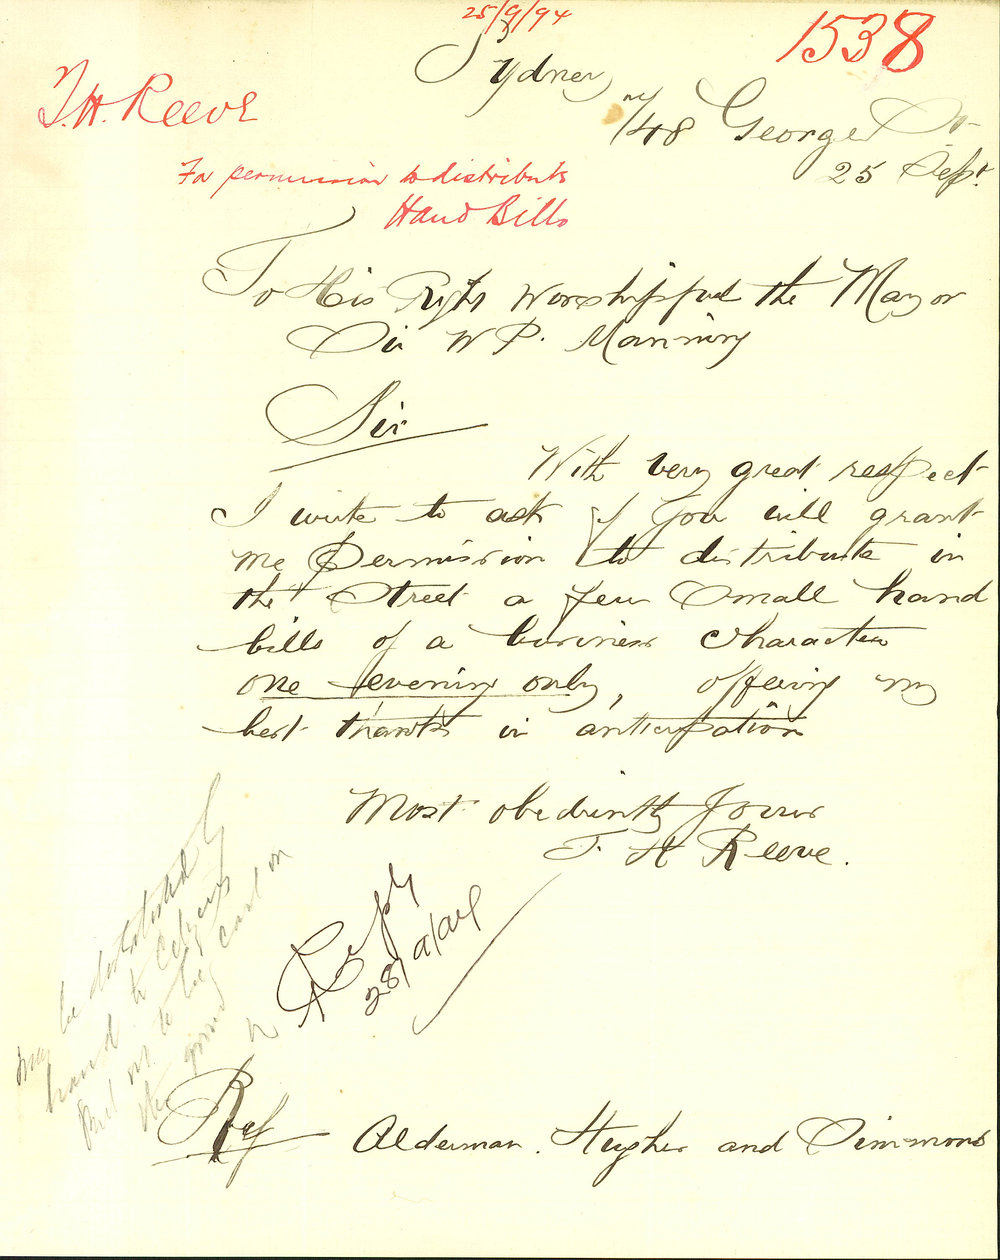 25/9/94
1538
Sydney
T.H. Reeve
748 George St
25 Sept.
For permission to distribute
Hand Bills
To His Right Worshipful the Mayor
Sir W P. Manning
Sir
With very great respect
I write to ask if you will grant
me Permission to distribute in
the Street a few Small hand
bills of a business Character
one evening only, offering my
best thanks in anticipation
Most obediently Yours
T. H Reeve.
Reply
28/9/94
may be distributed by
hand to Citizens
But not to be cast on
the ground
Ref Alderman. Hughes and Simmons